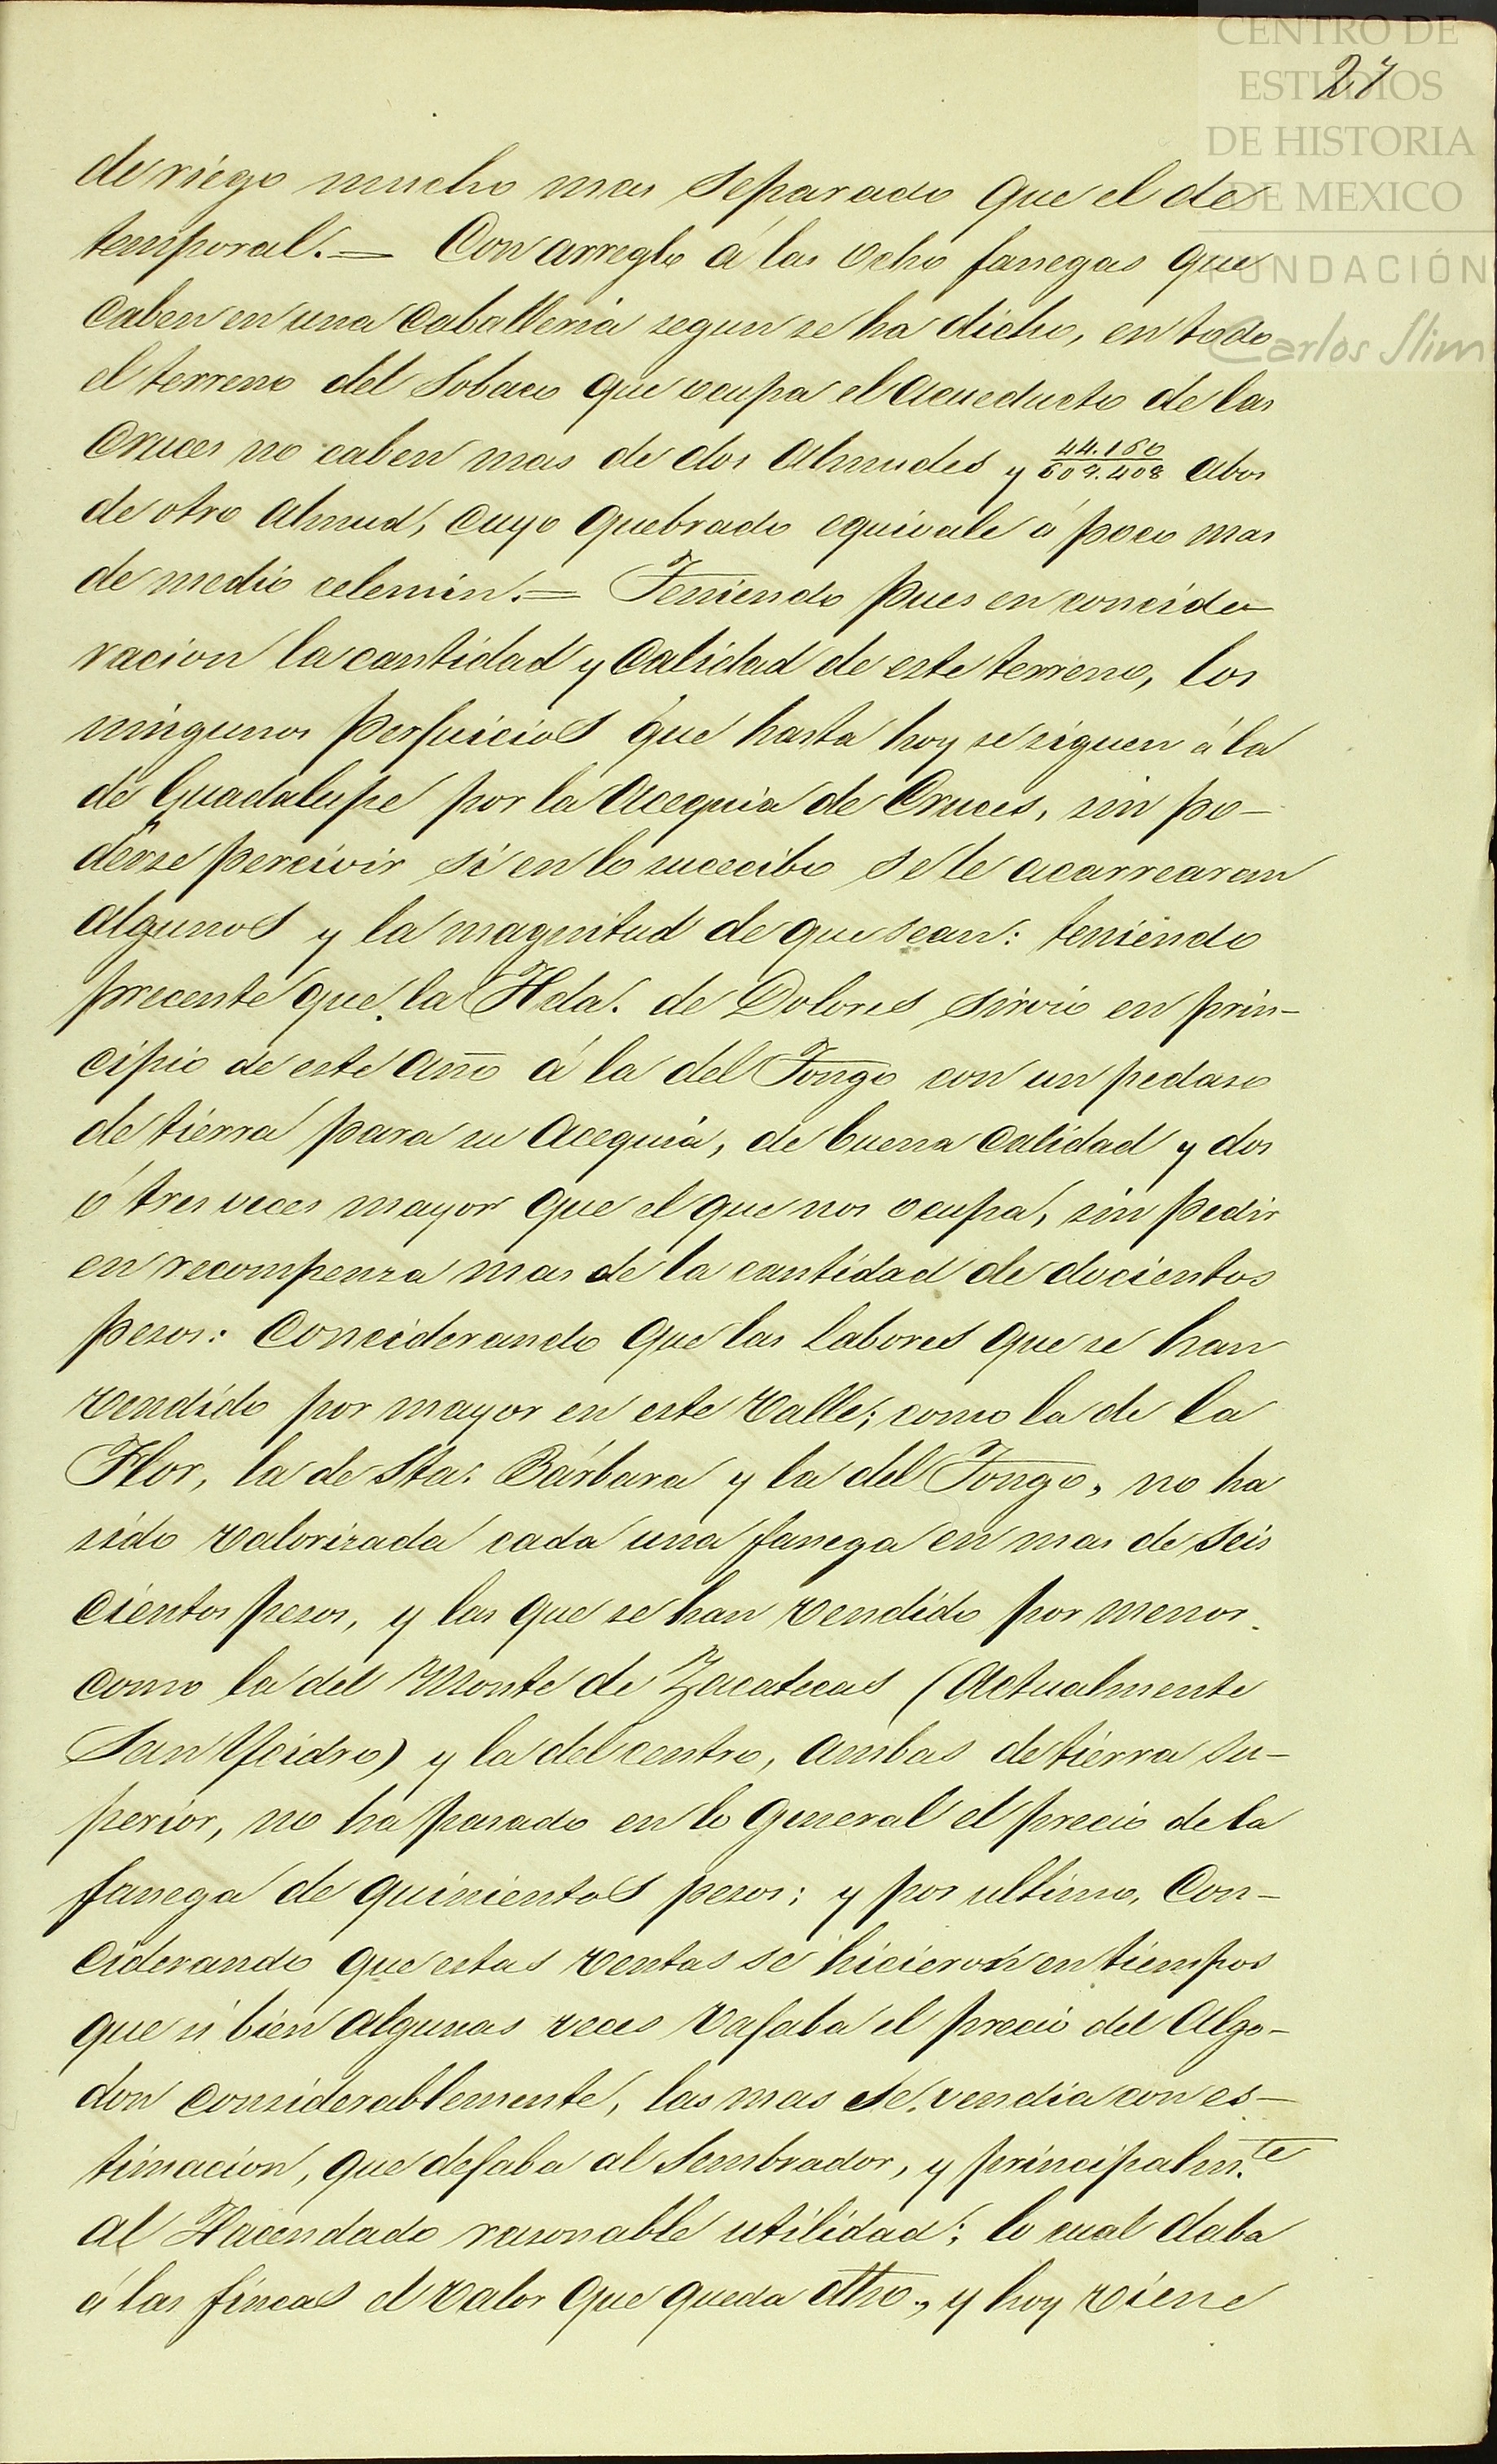 CENTRO DE
ESTUDIOS
DE HISTORIA
DE MEXICO
FUNDACIÓN
Carlos Slim
27
de riego mucho mas separado que el de
temporal.= Con arreglo á las ocho fanegas que
caben en una caballeria segun se ha dicho, en todo
el terreno del Sobaco que ocupa el Acueducto de las
Cruces no caben mas de dos Almudes y 44.160/609.408 abos
de otro almud, cuyo quebrado equivale á poco mas
de medio celemin.= Teniendo pues en concide-
racion la cantidad y calidad de este terreno, los
ningunos perjuicios que hasta hoy se siguen á la
de Guadalupe por la Acequia de Cruces, sin po-
derse percivir si en lo succecibo se le acarrearan
algunos y la magnitud de que sean: teniendo
precente que la Hda. de Dolores sirvio en prin-
cipio de este año á la del Tongo con un pedaso
de tierra para su Acequia, de buena calidad y dos
ó tres veces mayor que el que nos ocupa, sin pedir
en recompenza mas de la cantidad de docientos
pesos: Conciderando que las Labores que se han
vendido por mayor en este Valle; como la de la
Flor, la de Sta. Bárbara y la del Tongo, no ha
sido valorizada cada una fanega en mas de seis
cientos pesos, y las que se han vendido por menor
como la del Monte de Zacatecas (Actualmente
San Ycidro) y la del centro, ambas de tierra su-
perior, no ha pasado en lo general el precio de la
fanega de quinientos pesos; y por ultimo, Con-
ciderando que estas ventas se hicieron en tiempos
que si bien algunas veces vajaba el precio del Algo-
don considerablemente, las mas se vendia con es-
timacion, que dejaba al Sembrador, y principalm.te
al Hacendado rasonable utilidad; lo cual daba
á las fincas el valor que queda dho., y hoy viene